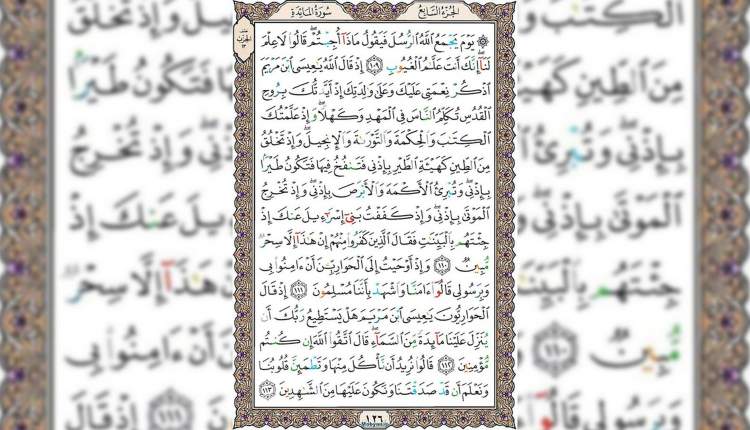 الجزء السابع
سورة المائدة
يَوْمَ يَجْمَعُ ٱللَّهُ ٱلرُّسُلَ فَيَقُولُ مَاذَآ أُجِبْتُمْ ۖ قَالُوا۟ لَا عِلْمَ
لَنَآ ۖ إِنَّكَ أَنتَ عَلَّـٰمُ ٱلْغُيُوبِ ١٠٩ إِذْ قَالَ ٱللَّهُ يَـٰعِيسَى ٱبْنَ مَرْيَمَ
ٱذْكُرْ نِعْمَتِى عَلَيْكَ وَعَلَىٰ وَٰلِدَتِكَ إِذْ أَيَّدتُّكَ بِرُوحِ
ٱلْقُدُسِ تُكَلِّمُ ٱلنَّاسَ فِى ٱلْمَهْدِ وَكَهْلًا ۖ وَإِذْ عَلَّمْتُكَ
ٱلْكِتَـٰبَ وَٱلْحِكْمَةَ وَٱلتَّوْرَىٰةَ وَٱلْإِنجِيلَ ۖ وَإِذْ تَخْلُقُ
مِنَ ٱلطِّينِ كَهَيْـَٔةِ ٱلطَّيْرِ بِإِذْنِى فَتَنفُخُ فِيهَا فَتَكُونُ طَيْرًۢا
بِإِذْنِى ۖ وَتُبْرِئُ ٱلْأَكْمَهَ وَٱلْأَبْرَصَ بِإِذْنِى ۖ وَإِذْ تُخْرِجُ
ٱلْمَوْتَىٰ بِإِذْنِى ۖ وَإِذْ كَفَفْتُ بَنِىٓ إِسْرَٰٓءِيلَ عَنكَ إِذْ
جِئْتَهُم بِٱلْبَيِّنَـٰتِ فَقَالَ ٱلَّذِينَ كَفَرُوا۟ مِنْهُمْ إِنْ هَـٰذَآ إِلَّا سِحْرٌ
مُّبِينٌ ١١٠ وَإِذْ أَوْحَيْتُ إِلَى ٱلْحَوَارِيِّـۧنَ أَنْ ءَامِنُوا۟ بِى
وَبِرَسُولِى قَالُوٓا۟ ءَامَنَّا وَٱشْهَدْ بِأَنَّنَا مُسْلِمُونَ ١١١ إِذْ قَالَ
ٱلْحَوَارِيُّونَ يَـٰعِيسَى ٱبْنَ مَرْيَمَ هَلْ يَسْتَطِيعُ رَبُّكَ أَن
يُنَزِّلَ عَلَيْنَا مَآئِدَةً مِّنَ ٱلسَّمَآءِ ۖ قَالَ ٱتَّقُوا۟ ٱللَّهَ إِن كُنتُم
مُّؤْمِنِينَ ١١٢ قَالُوا۟ نُرِيدُ أَن نَّأْكُلَ مِنْهَا وَتَطْمَئِنَّ قُلُوبُنَا
وَنَعْلَمَ أَن قَدْ صَدَقْتَنَا وَنَكُونَ عَلَيْهَا مِنَ ٱلشَّـٰهِدِينَ ١١٣
١٢٦